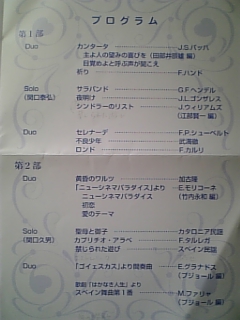 プログラム
第1部
Duo カンタータ J.S.バッハ
主よ人の望みの喜びを (田部井辰雄 編)
目覚めよと呼ぶ声が聞こえ
祈り F.ハンド
Solo サラバンド G.F.ヘンデル
(関口泰弘) 夜明け J.L.ゴンザレス
シンドラーのリスト J.ウィリアムズ
(江部賢一 編)
Duo セレナーデ F.P.シューベルト
不良少年 武満徹
ロンド F.カルリ
第2部
Duo 黄昏のワルツ 加古隆
「ニューシネマパラダイス」より E.モリコーネ
ニューシネマパラダイス (竹内永和 編)
初恋
愛のテーマ
Solo 聖母と御子 カタロニア民謡
(関口久男) カプリチオ・アラベ F.タルレガ
禁じられた遊び スペイン民謡
Duo 「ゴイェスカス」より間奏曲 E.グラナドス
(プジョール 編)
歌劇「はかなき人生」より
スペイン舞曲第1番 M.ファリャ
(プジョール 編)